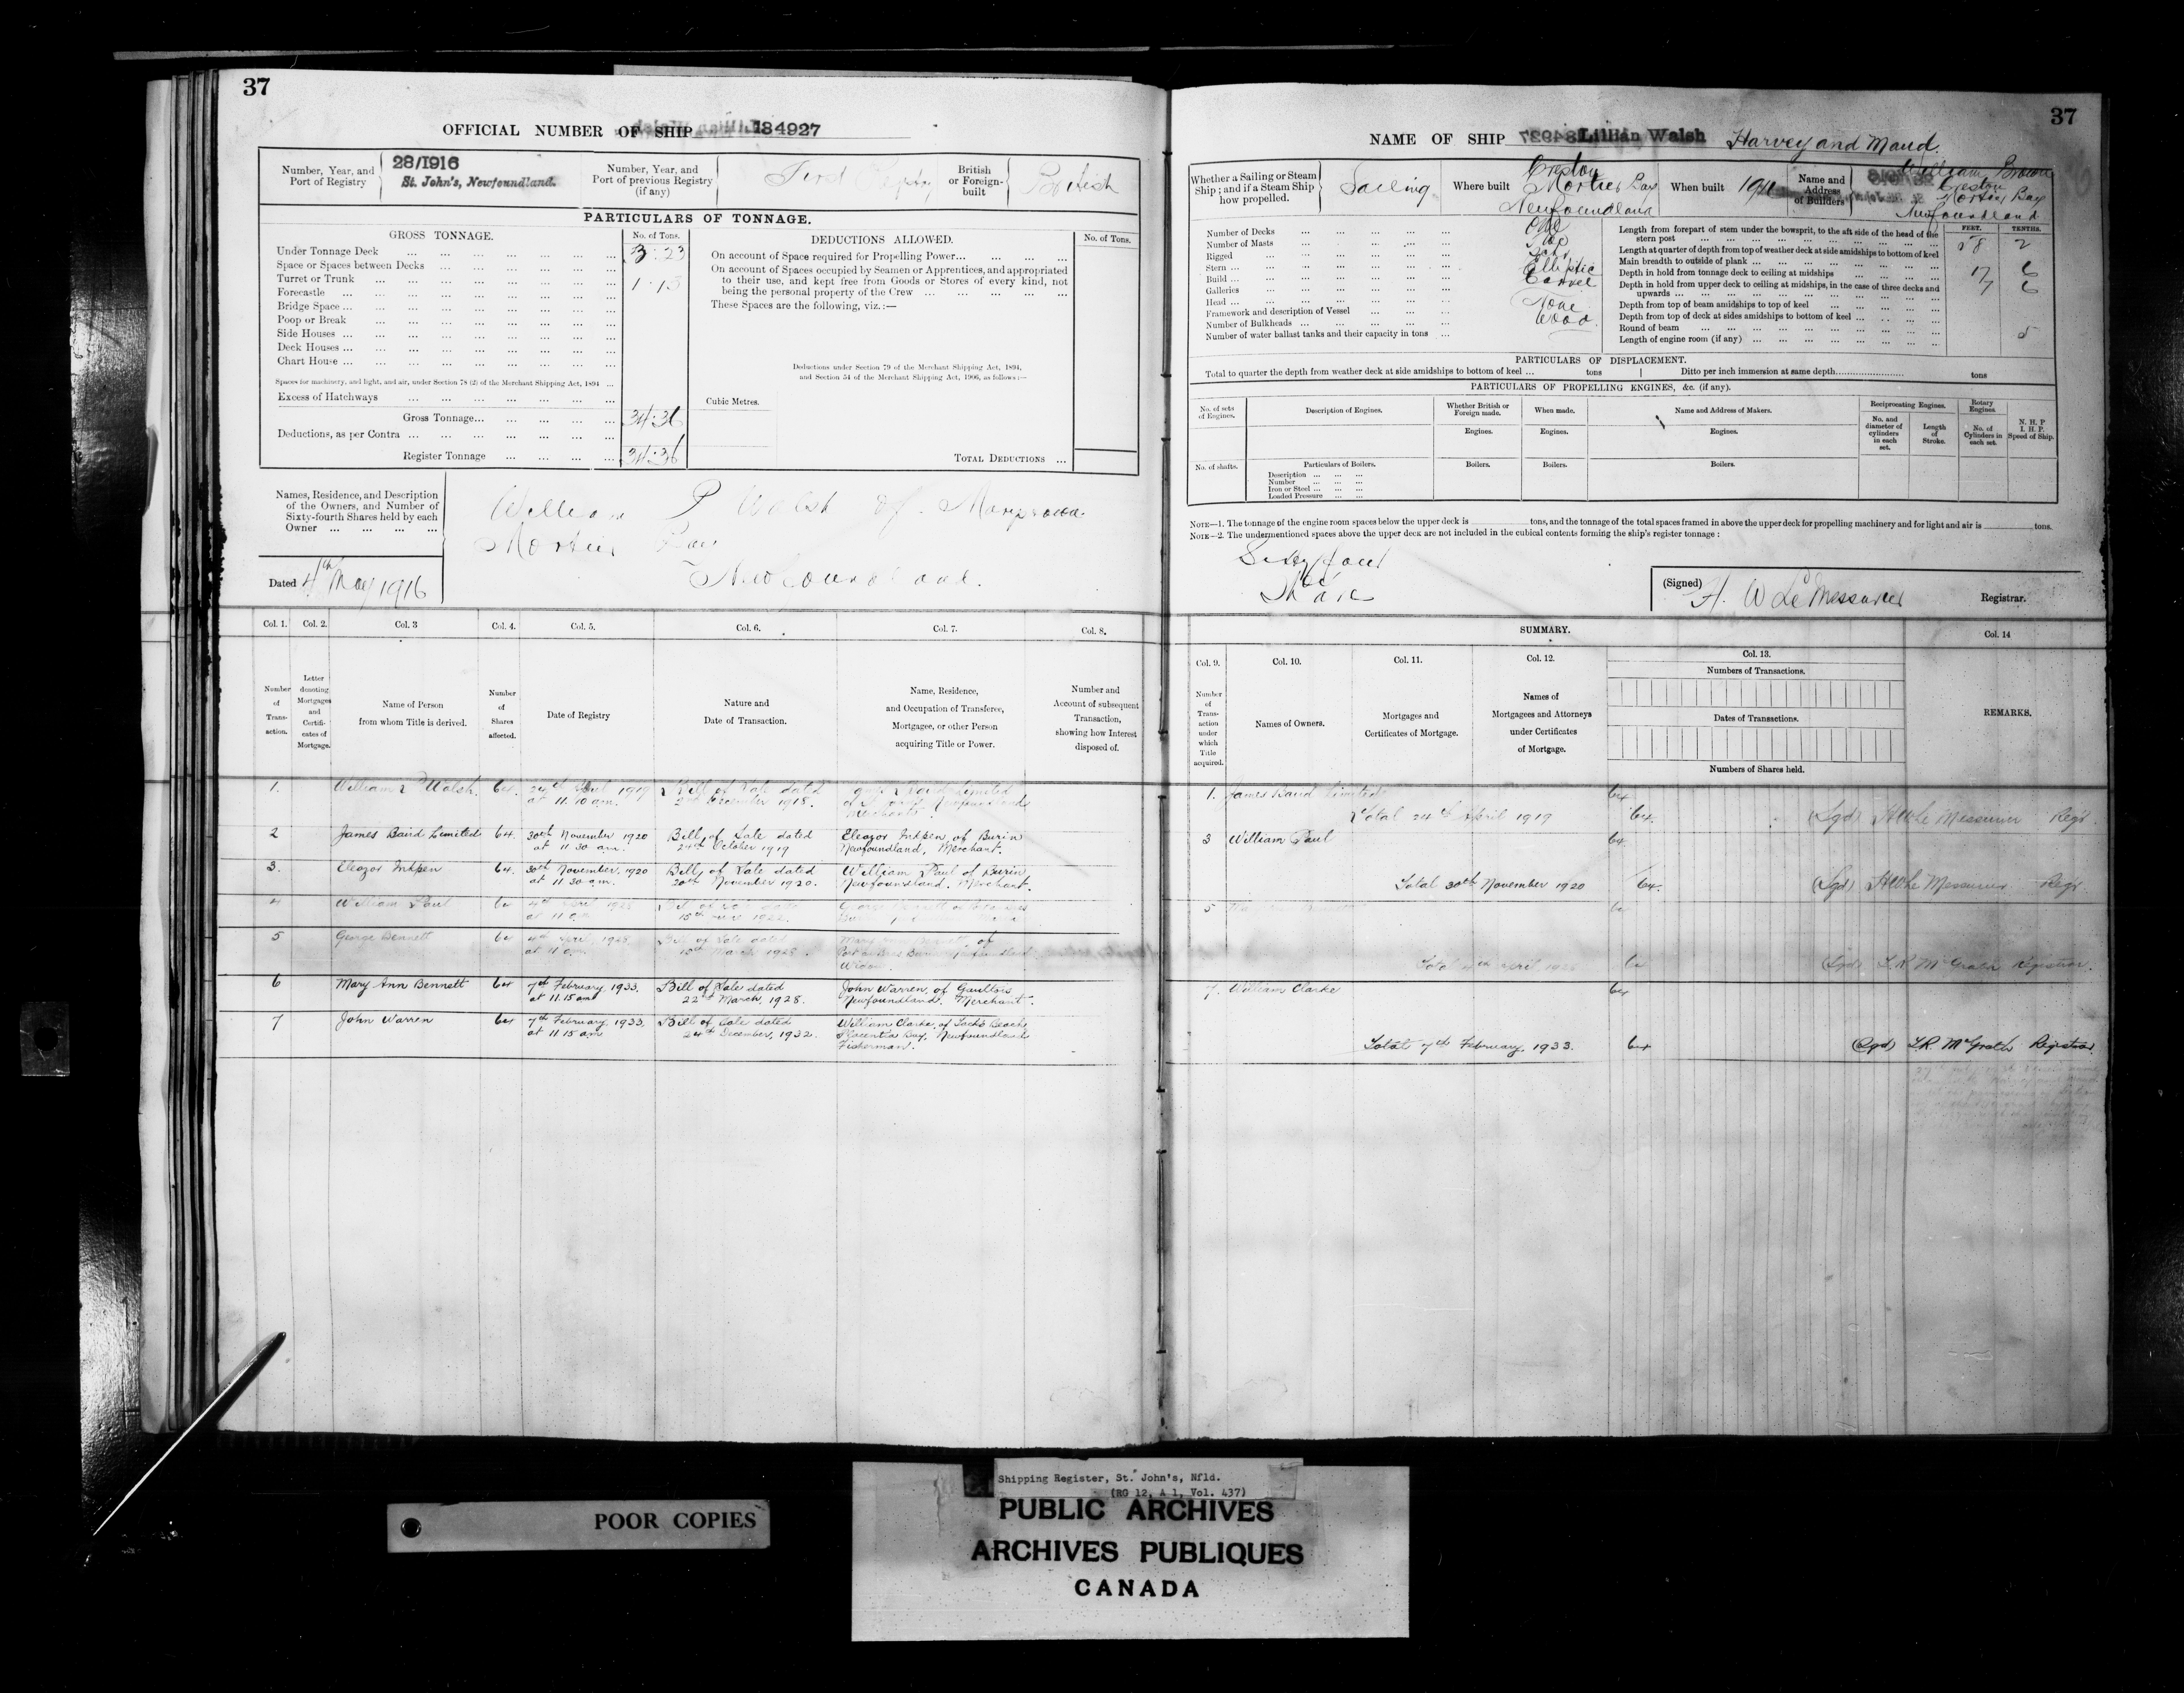 37
OFFICIAL NUMBER OF SHIP 134927
Number, Year, and Port of Registry
28/1916
St. John's, Newfoundland.
Number, Year, and Port of previous Registry (if any)
First
British or Foreign-built
British
PARTICULARS OF TONNAGE.
GROSS TONNAGE.
No. of Tons.
Under Tonnage Deck
Space or Spaces between Decks
Turret or Trunk
1.13
Forecastle
Bridge Space
Poop or Break
Side Houses
Deck Houses
Chart House
Spaces for machinery, and light, and air, under Section 78 (2) of the Merchant Shipping Act, 1894
Excess of Hatchways
Gross Tonnage 34.36
Deductions, as per Contra
Register Tonnage 34.36
DEDUCTIONS ALLOWED.
No. of Tons.
On account of Space required for Propelling Power
On account of Spaces occupied by Seamen or Apprentices, and appropriated
to their use, and kept free from Goods or Stores of every kind, not
being the personal property of the Crew
These Spaces are the following, viz.:—
Deductions under Section 79 of the Merchant Shipping Act, 1894,
and Section 54 of the Merchant Shipping Act, 1906, as follows:—
Cubic Metres.
TOTAL DEDUCTIONS
Names, Residence, and Description
of the Owners, and Number of
Sixty-fourth Shares held by each
Owner
William P Walsh of
Mortier Bay
Newfoundland.
Dated 4th May 1916
Col. 1. Col. 2. Col. 3 Col. 4. Col. 5. Col. 6. Col. 7. Col. 8.
Number of Transaction.
Letter denoting Mortgages and Certificates of Mortgage.
Name of Person from whom Title is derived.
Number of Shares affected.
Date of Registry
Nature and Date of Transaction.
Name, Residence, and Occupation of Transferee, Mortgagee, or other Person acquiring Title or Power.
Number and Account of subsequent Transaction, showing how Interest disposed of.
1. William P Walsh. 64. 24th April 1919 Bill of Sale dated James Baird Limited
at 11.10 a.m. 2nd December 1918. of St. John's Newfoundland
Merchants
2 James Baird Limited 64. 30th November 1920 Bill of Sale dated Eleazor Inkpen of Burin
at 11 30 am. 24th October 1919 Newfoundland, Merchant.
3. Eleazor Inkpen 64. 30th November, 1920 Bill of Sale dated William Paul of Burin
at 11 30 a.m. 20th November 1920. Newfoundland. Merchant.
4 William Paul 64 4th April 1928 Bill of Sale dated George Bennett
at 11 a.m.
5 George Bennett 64 4th April, 1928, Bill of Sale dated Mary Ann Bennett, of
at 11 a.m. March 1928.
Widow.
6 Mary Ann Bennett 64 7th February, 1933. Bill of Sale dated John Warren, of Gaultois
at 11.15 am 22nd March, 1928. Newfoundland. Merchant.
7 John Warren 64 7th February, 1933, Bill of Sale dated William Clarke, of Jack's Beach
at 11 15 am 24th December, 1932. Placentia Bay, Newfoundland
Fisherman.
37
NAME OF SHIP Lillian Walsh Harvey and Maud.
Whether a Sailing or Steam Ship; and if a Steam Ship how propelled.
Sailing
Where built
Creston
Mortier Bay
Newfoundland
When built
Name and Address of Builders
William Brown
Creston
Mortier Bay
Newfoundland
Number of Decks One
Number of Masts Two
Rigged Schr
Stern Elliptic
Build Carvel
Galleries
Head None
Framework and description of Vessel Wood.
Number of Bulkheads
Number of water ballast tanks and their capacity in tons
FEET. TENTHS.
Length from forepart of stem under the bowsprit, to the aft side of the head of the stern post 58 2
Length at quarter of depth from top of weather deck at side amidships to bottom of keel
Main breadth to outside of plank 17 6
Depth in hold from tonnage deck to ceiling at midships 7 6
Depth in hold from upper deck to ceiling at midships, in the case of three decks and upwards
Depth from top of beam amidships to top of keel
Depth from top of deck at sides amidships to bottom of keel
Round of beam 5
Length of engine room (if any)
PARTICULARS OF DISPLACEMENT.
Total to quarter the depth from weather deck at side amidships to bottom of keel tons Ditto per inch immersion at same depth tons
PARTICULARS OF PROPELLING ENGINES, &c. (if any).
No. of sets of Engines.
Description of Engines.
Whether British or Foreign made.
When made.
Name and Address of Makers.
Reciprocating Engines.
Rotary Engines
No. and diameter of cylinders in each set.
Length of Stroke.
No. of Cylinders in each set.
N. H. P
I. H. P.
Speed of Ship.
Engines. Engines. Engines.
No. of shafts.
Particulars of Boilers.
Boilers. Boilers. Boilers.
Description
Number
Iron or Steel
Loaded Pressure
NOTE—1. The tonnage of the engine room spaces below the upper deck is tons, and the tonnage of the total spaces framed in above the upper deck for propelling machinery and for light and air is tons.
NOTE—2. The undermentioned spaces above the upper deck are not included in the cubical contents forming the ship's register tonnage :
Sixty four
(Signed) H. W LeMessurier Registrar.
SUMMARY.
Col. 9. Col. 10. Col. 11. Col. 12. Col. 13. Col. 14
Number of Transaction under which Title acquired.
Names of Owners.
Mortgages and Certificates of Mortgage.
Names of Mortgagees and Attorneys under Certificates of Mortgage.
Numbers of Transactions.
Dates of Transactions.
Numbers of Shares held.
REMARKS.
1. James Baird Limited 64
Total 24th April 1919 64. (Sgd) HWLe Messurier Regr.
3 William Paul 64
Total 30th November 1920 64. (Sgd) HWLe Messurier Regr.
5
Total 4th April 1928 64 (Sgd) L.R. McGrath Registrar.
7. William Clarke 64
Total 7th February, 1933. 64 (Sgd) L.R. McGrath Registrar.
POOR COPIES
Shipping Register, St. John's, Nfld.
(RG 12, A 1, Vol. 437)
PUBLIC ARCHIVES
ARCHIVES PUBLIQUES
CANADA